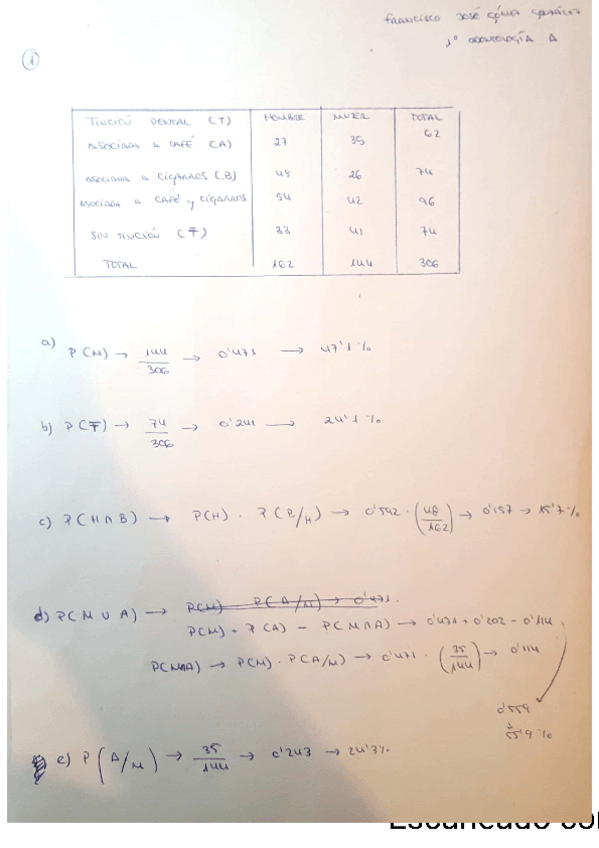 FRANCISCO JOSÉ
1º ODONTOLOGÍA A
1
TINCIÓN DENTAL (T) HOMBRE MUJER TOTAL
ASOCIADA A CAFÉ (A) 27 35 62
ASOCIADA A CIGARROS (B) 48 26 74
ASOCIADA A CAFÉ y CIGARROS 54 42 96
SIN TINCIÓN (T̅) 33 41 74
TOTAL 162 144 306
a) P(M) → 144/306 → 0'471 → 47'1 %
b) P(T̅) → 74/306 → 0'241 → 24'1 %
c) P(H∩B) → P(H) · P(B/H) → 0'592 · (48/162) → 0'157 → 15'7 %
d) P(M∪A) → P(M) · P(A/M) → 0'471.
P(M) + P(A) - P(M∩A) → 0'471 + 0'202 - 0'114
P(M∩A) → P(M) · P(A/M) → 0'471 · (35/144) → 0'114
0'559
55'9 %
e) P(A/M) → 35/144 → 0'243 → 24'3%